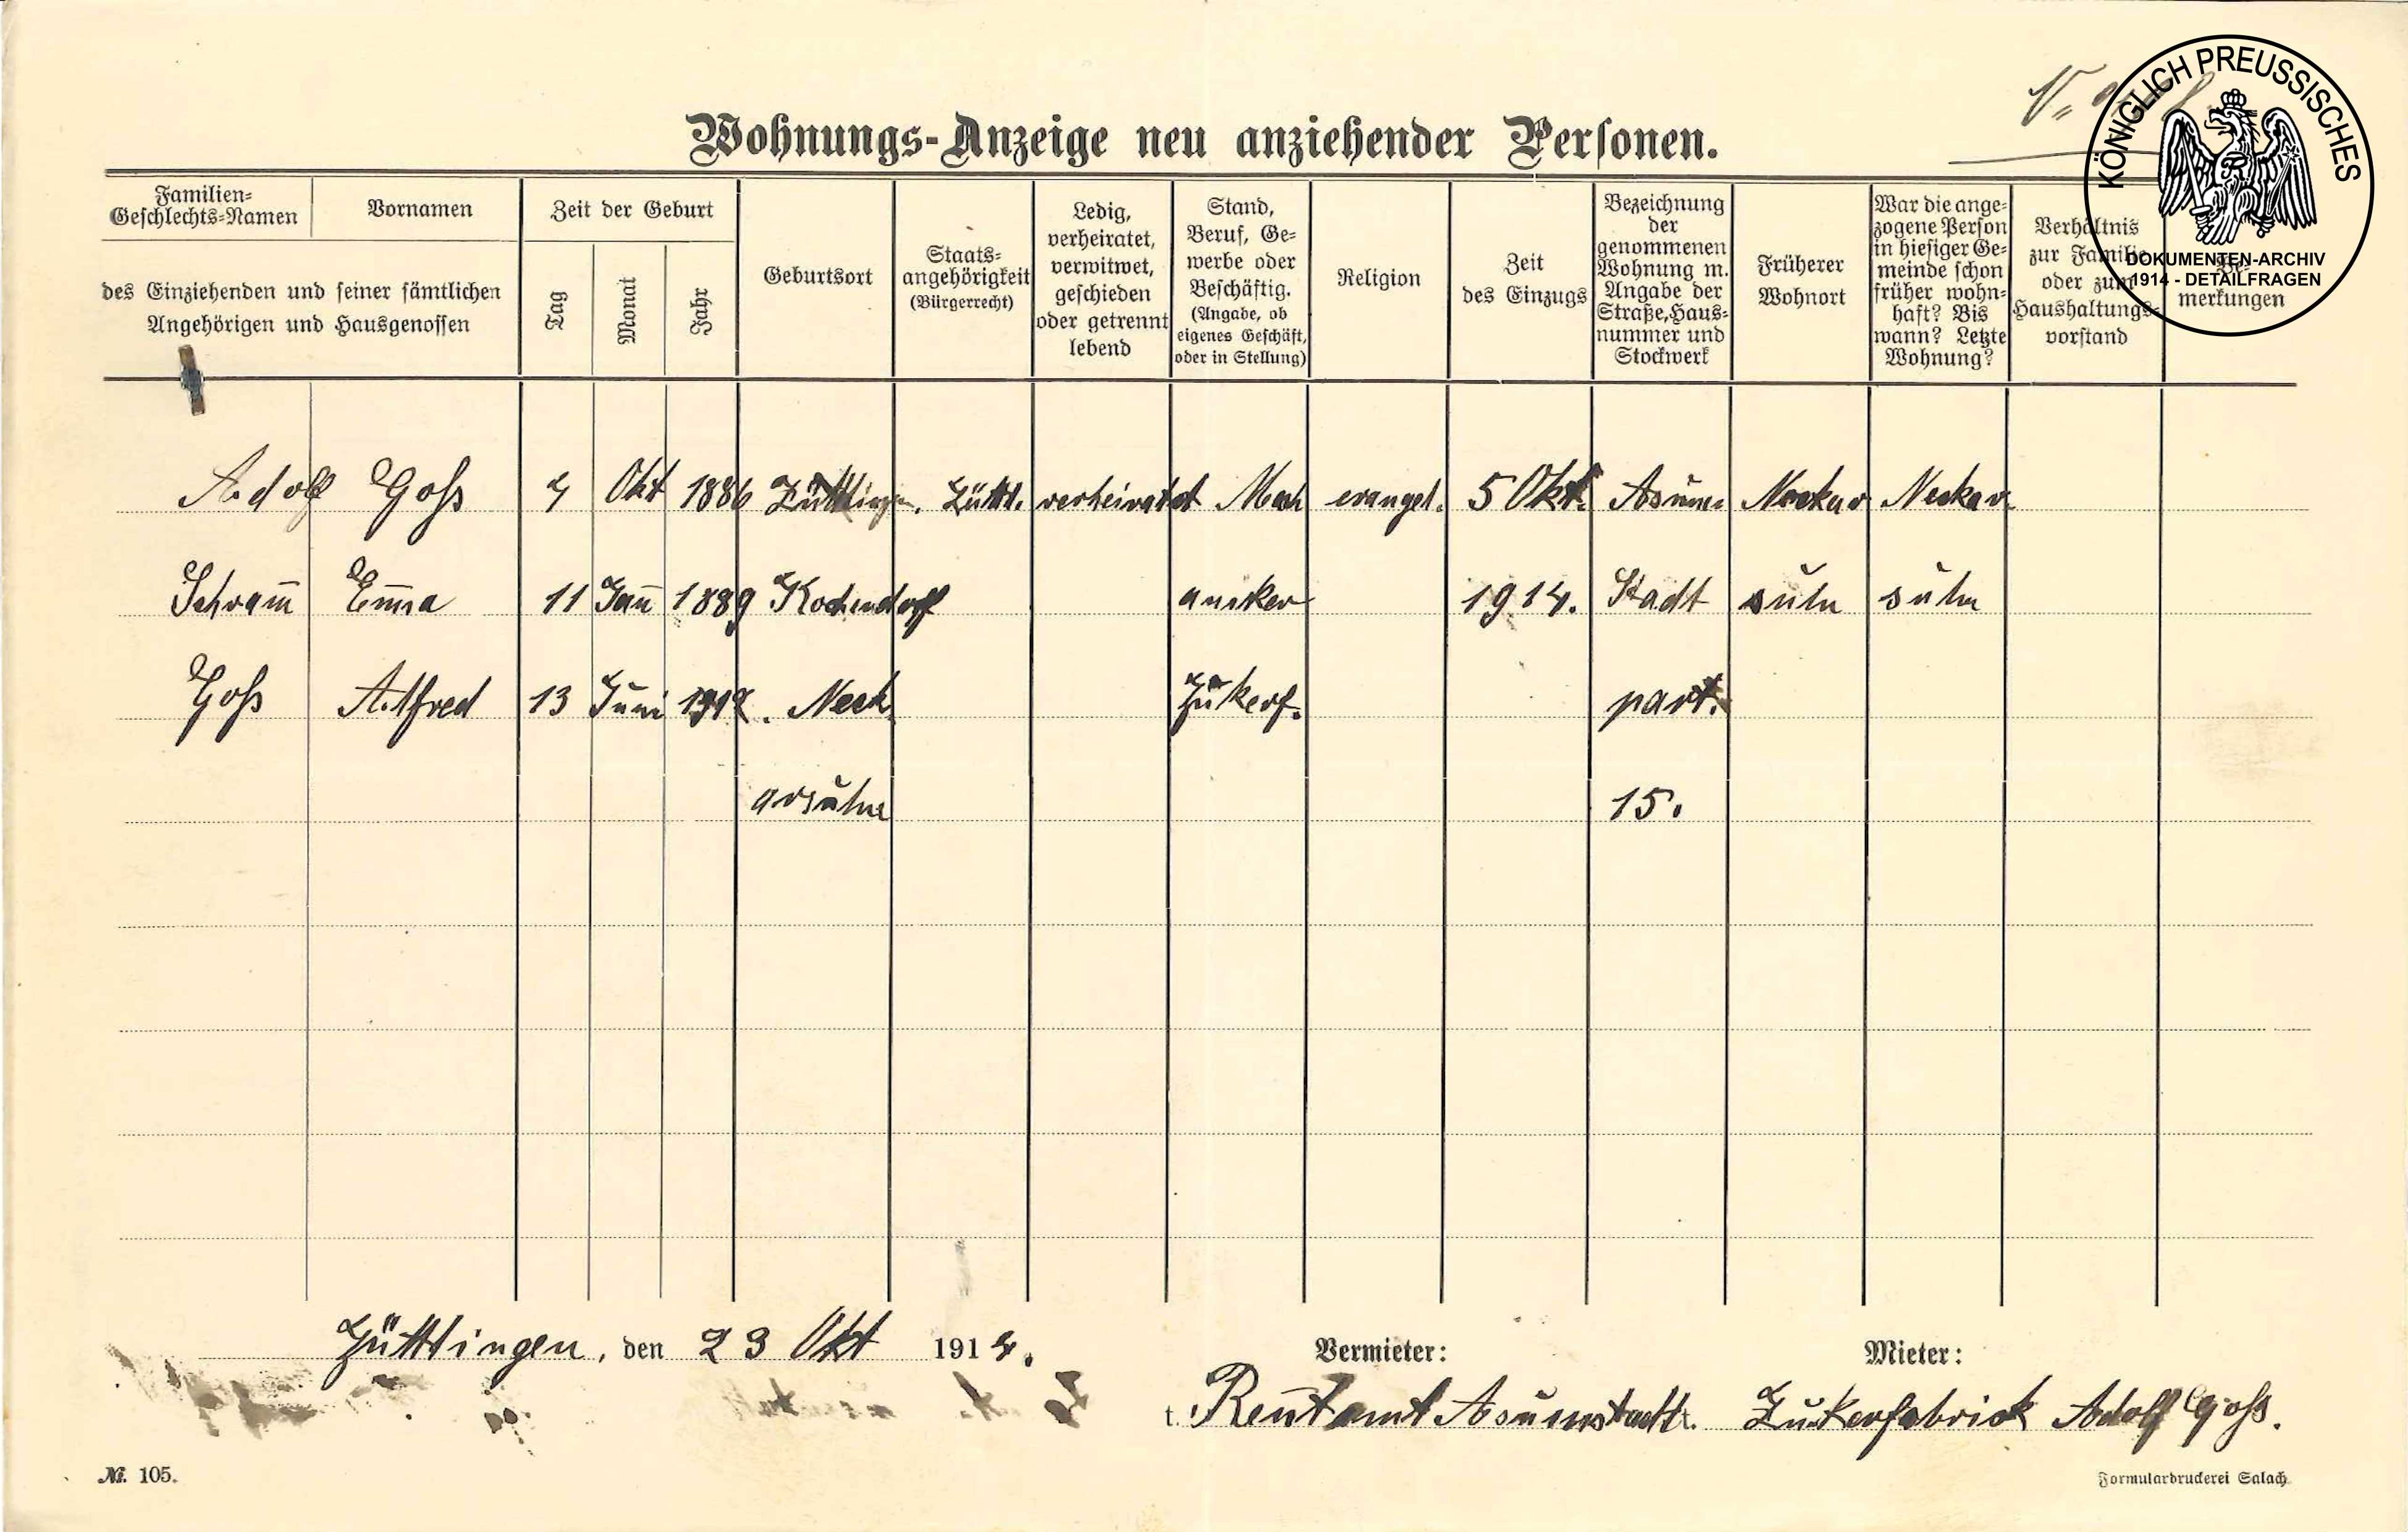 Wohnungs-Anzeige neu anziehender Personen.
KÖNIGLICH PREUSSISCHES
DOKUMENTEN-ARCHIV
1914 - DETAILFRAGEN
Familien-
Geschlechts-Namen
Vornamen
des Einziehenden und seiner sämtlichen
Angehörigen und Hausgenossen
Zeit der Geburt
Tag
Monat
Jahr
Geburtsort
Staats-
angehörigkeit
(Bürgerrecht)
Ledig,
verheiratet,
verwitwet,
geschieden
oder getrennt
lebend
Stand,
Beruf, Ge-
werbe oder
Beschäftig.
(Angabe, ob
eigenes Geschäft,
oder in Stellung)
Religion
Zeit
des Einzugs
Bezeichnung
der
genommenen
Wohnung m.
Angabe der
Straße, Haus-
nummer und
Stockwerk
Früherer
Wohnort
War die ange-
zogene Person
in hiesiger Ge-
meinde schon
früher wohn-
haft? Bis
wann? Letzte
Wohnung?
Verhältnis
zur Familie
oder zum
Haushaltungs-
vorstand
Be-
merkungen
Adolf Goß 4 Okt 1886 Züttlingen. Züttl. verheiratet Mech evangel. 5 Okt. Asum- Neckar Neckar
Schram̅ Em̅a 11 Jan̅ 1889 Kochendorf aniker 1914. Stadt sulm sulm
Goß Alfred 13 Juni 1912. Neck Zukerf. part.
arsulm 15.
Züttlingen, den 23 Okt 1914.
Vermieter:
Mieter:
t. Rentamt Asumstadt. Zukerfabrick Adolf Goß.
№. 105.
Formulardruckerei Salach